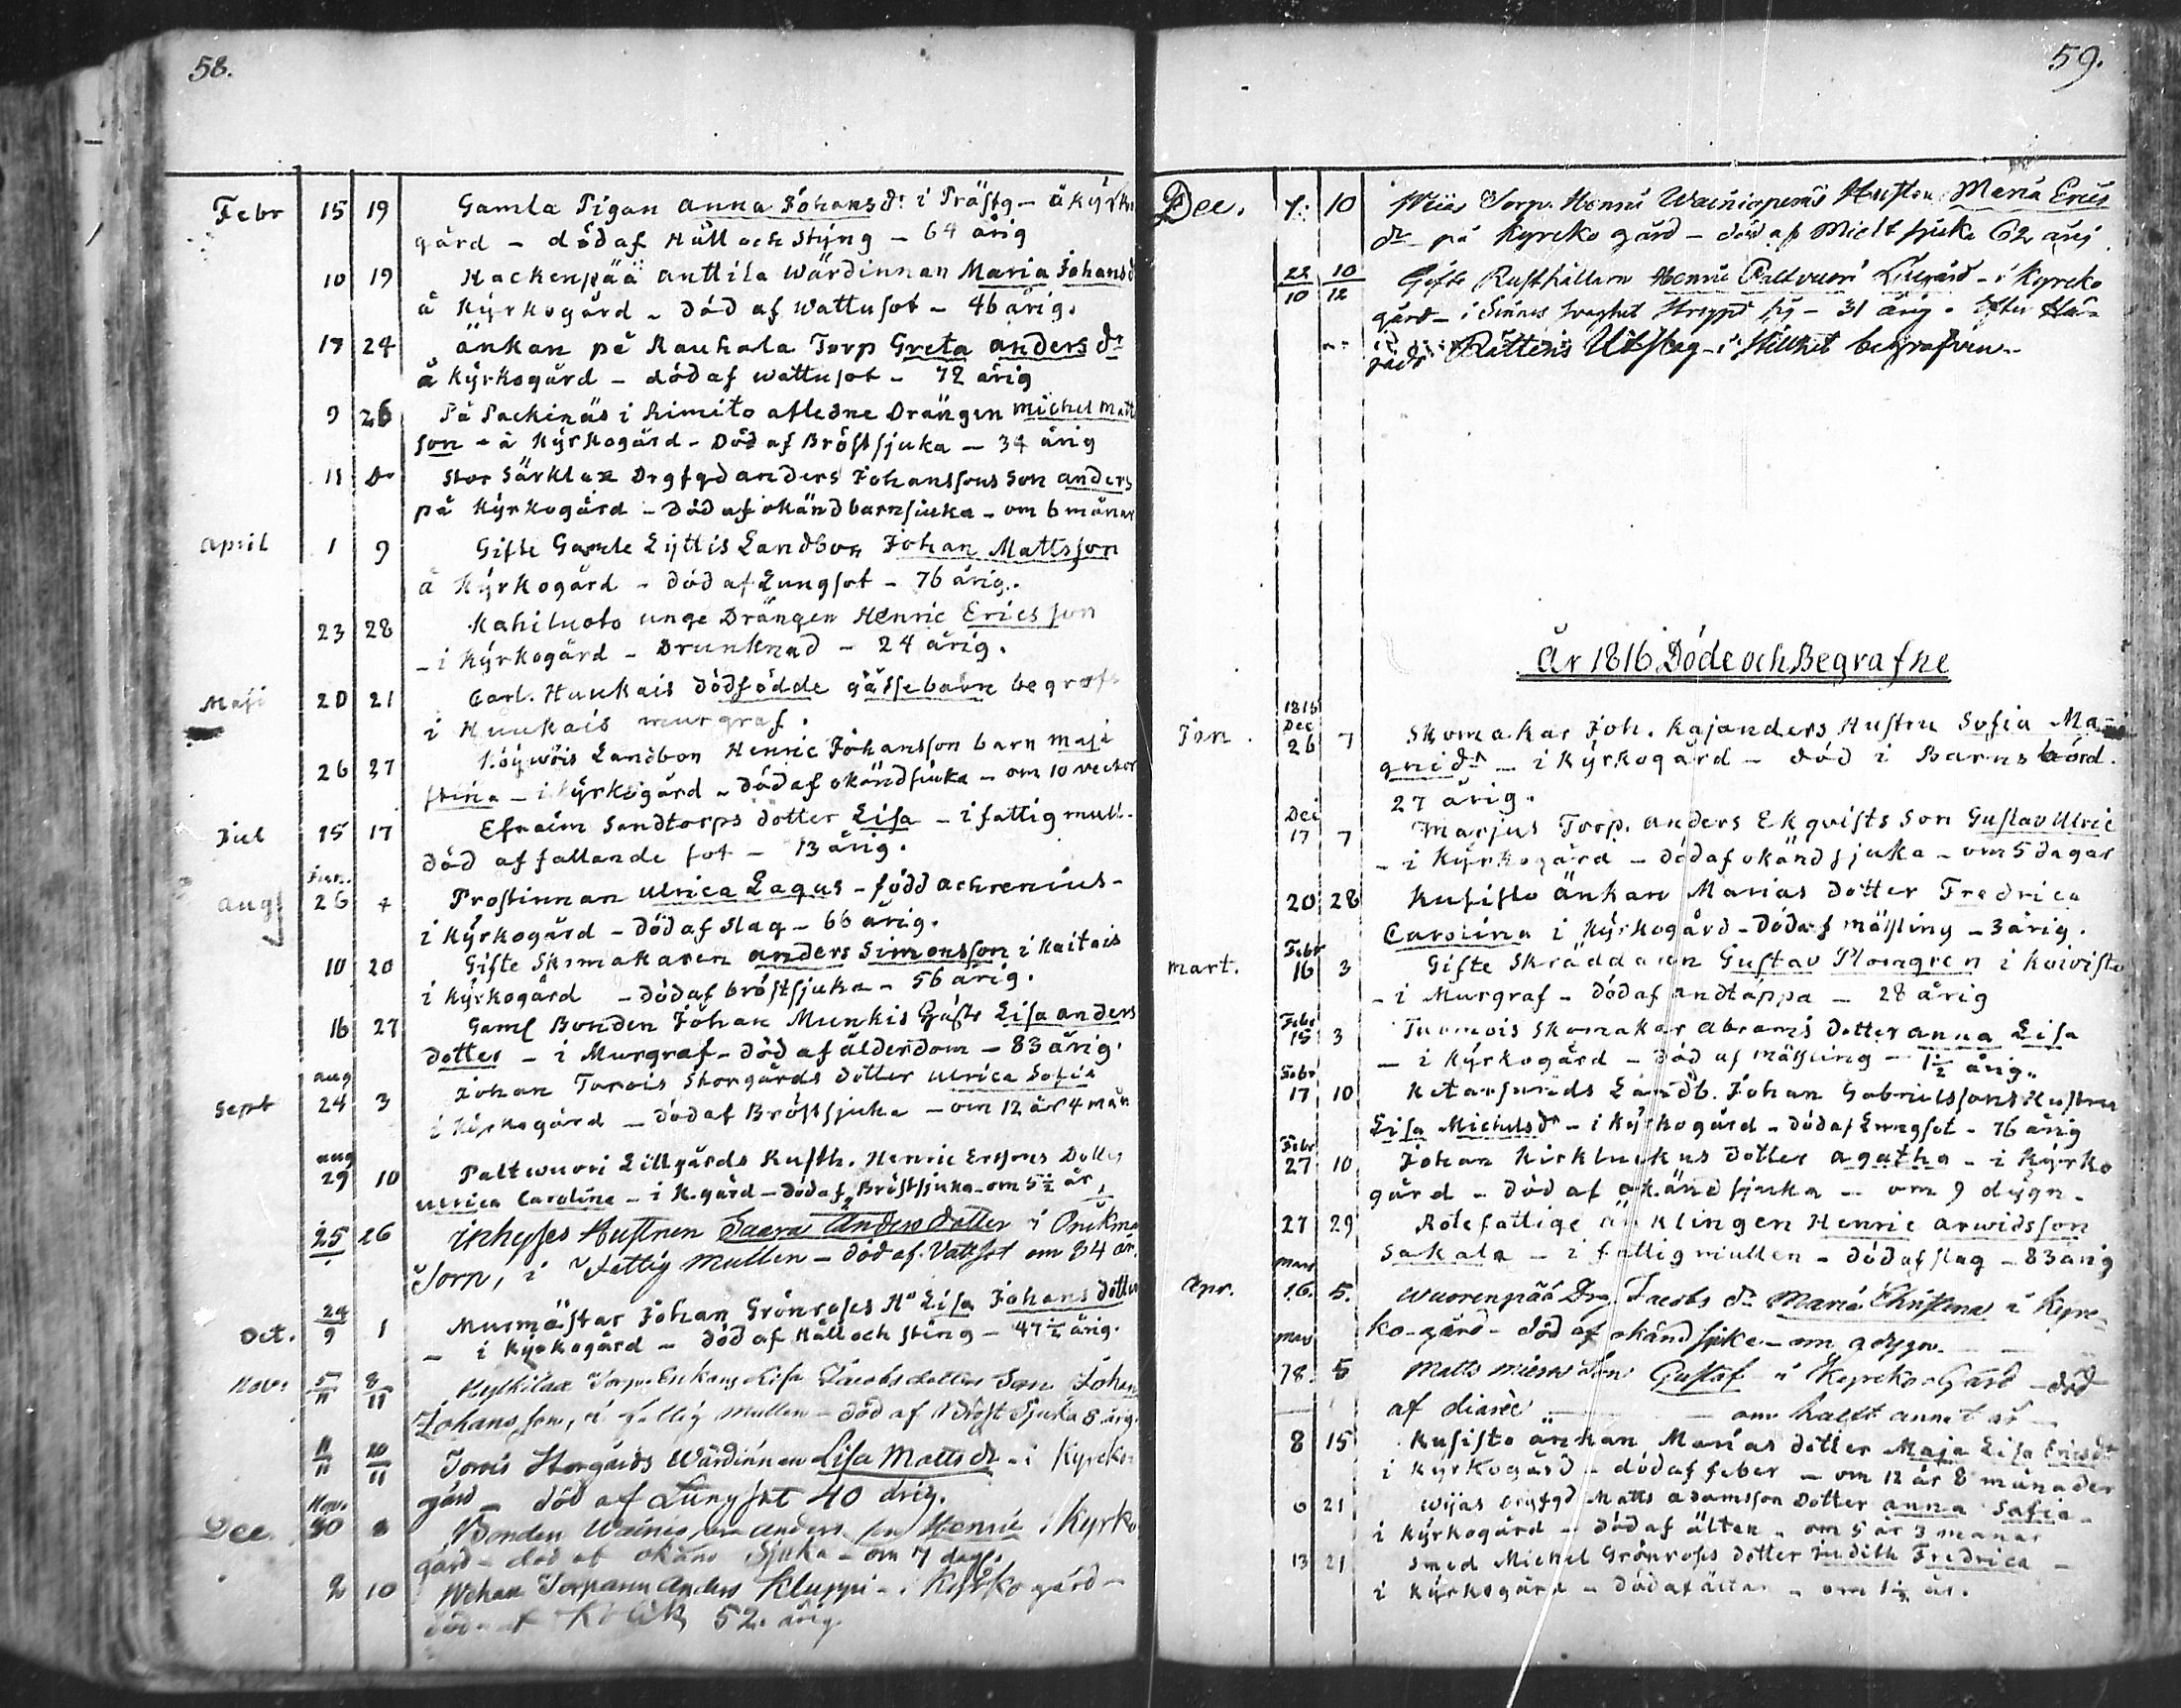 58.
Febr 15 19 Gamla Pigan anna Johansdr i Prästg - å kyrko
gård - död af Håll och Styng - 64 årig
10 19 Hackenpää anttila Wärdinnan Maria Johansd
å Kyrkogård - död af Wattusot - 46 årig.
17 24 änkan på Rauhala Torp Greta anders dr
å Kyrkogård - död af wattusot - 72 årig
9 26 På Packinäs i Rimito afledne Drängen Michel Matt
son - å Kyrkogård - Död af Bröstsjuka - 34 årig
11 do Stor Särklax Drgfgd anders Johanssons Son anders
på Kyrkogård - Död af okänd barnsjuka - om 6 månar
April 1 9 Gifte Gamle Lyttis Landbon Johan Mattsson
å Kyrkogård - död af Lungsot - 76 årig.
23 28 Kahiluoto unge Drängen Henric Ericsson
- i Kyrkogård - Drunknad - 24 årig.
Maji 20 21 Carl. Haukais dödfödde gåssebarn begrafs
i Haukais murgraf.
26 27 Landbon Henric Johansson barn Maja
stina - i Kyrkogård - död af okändsjuka - om 10 veckor
Jul 15 17 Efraim Sandtorps dotter Lisa - i fattig mull.
död af fallande sot - 13 årig.
Jun.
Aug 26 4 Prostinnan Ulrica Lagus - född achrenius -
i Kyrkogård - död af slag - 66 årig.
10 20 Gifte Skomakaren anders Simonsson i Kaitais
i Kyrkogård - död af bröstsjuka - 56 årig.
16 27 Gaml Bonden Johan Munkis Gäste Lisa anders
dotter - i Murgraf - död af ålderdom - 83 årig.
aug
Sept 24 3 Johan Torois Storgårds dotter Ulrica Sofia
i Kyrkogård - död af Bröstsjuka - om 12 år 4 mån
aug
29 10 Paltwuori Lillgårds Rusth. Henric Ersons Dotter
Ulrica Carolina - i K.gård - död af Bröstsjuka - om 5½ år,
25 26 Inhyses Hustrun Saara Anders dotter i
Torp, i Fattig Mullen - död af Vattsot om 84 år.
Oct. 29/9 1 Murmästar Johan Grönroses Hu Lisa Johans dotter
- i Kyrkogård - död af Håll och sting - 47½ årig.
Nov. 5/11 8/11 Lisa Jacobs dotters Son Johan
Johansson, i Fattig Mullen - död af Bröst Sjuka 8 årig.
11/11 20/11 Torois Storgårds Wärdinnan Lisa Matts dr - i Kyrcko
gård - död af Lungsot 40 årig.
Nov.
Dec. 30 8 Bonden anders son Henric i Kyrko
gård - död af okänd Sjuka - om 7 dagar.
2 10 Wehan Torparen Anders Kluppi - i Kyrko gård -
död af Kolik 52. årig.
59.
Dec. 7. 10 Wias Torp. Henric Wainionperäs Hustru Maria Erics
dr på Kyrcko gård - död af Mielt sjuka 62 årig.
22/10 10/12 Gifte Rusthållarn Henric Paltvuori Lilgård - i Kyrcko
gård - i Sinnes svaghet sig - 31 årig. Efter Hä-
rads Rättens Utslag - i stillhet begrafven..
År 1816 Döde och Begrafne
1815
Dec
Jan. 26 7 Skomakar Joh. Kajanders Hustru Sofia Ma-
gnidr - i Kyrkogård - död i Barnsbörd.
27 årig.
Dec
17 7 Marjus Torp. Anders Ekqvists Son Gustav Ulric
- i Kyrkogård - död af okändsjuka - om 5 dagar
20 28 Kusisto änkan Marias dotter Fredrica
Carolina i Kyrkogård - död af mässling - 3 årig.
Febr
Mart. 16 3 Gifte Skräddaren Gustav Blomgren i Koivisto
- i Murgraf - död af andtäppa - 28 årig
Febr
15 3 Tuomois Skomakar Abrams dotter anna Lisa
- i Kyrkogård - död af mässling - 1½ årig.
Febr
17 10 Landb. Johan Gabrielssons Hustru
Lisa Michelsdr - i Kyrkogård - död af Lungsot - 76 årig
Febr
27 10 Johan Kirkluckus dotter agatha - i Kyrko
gård - död af okändsjuka - om 9 dygn.
27 29 Rotefattige änklingen Henric arwidsson
Sakala - i fattigmullen - död af slag - 83 årig
mars
Apr. 16. 5. Wuorenpää Drg. Jacobs dr Maria Christina i Kyrc-
ko-gård - död af okändsjuka - om 9 dygn.
mars
18. 5 Matts Son Gustaf i Kyrcko-Gård - död
af diarré - om halft annat år -
8 15 Kusisto änkan Marias dotter Maja Lisa Ericsdr
i Kyrkogård - död af feber - om 12 år 8 månader
6 21 Wijas Drgfgd Matts Adamsson Dotter anna Safia -
i Kyrkogård - död af älten - om 5 år 3 månar
13 21 Smed Michel Grönroses dotter Judith Fredrica -
i Kyrkogård - död af ältan - om 1½ år.